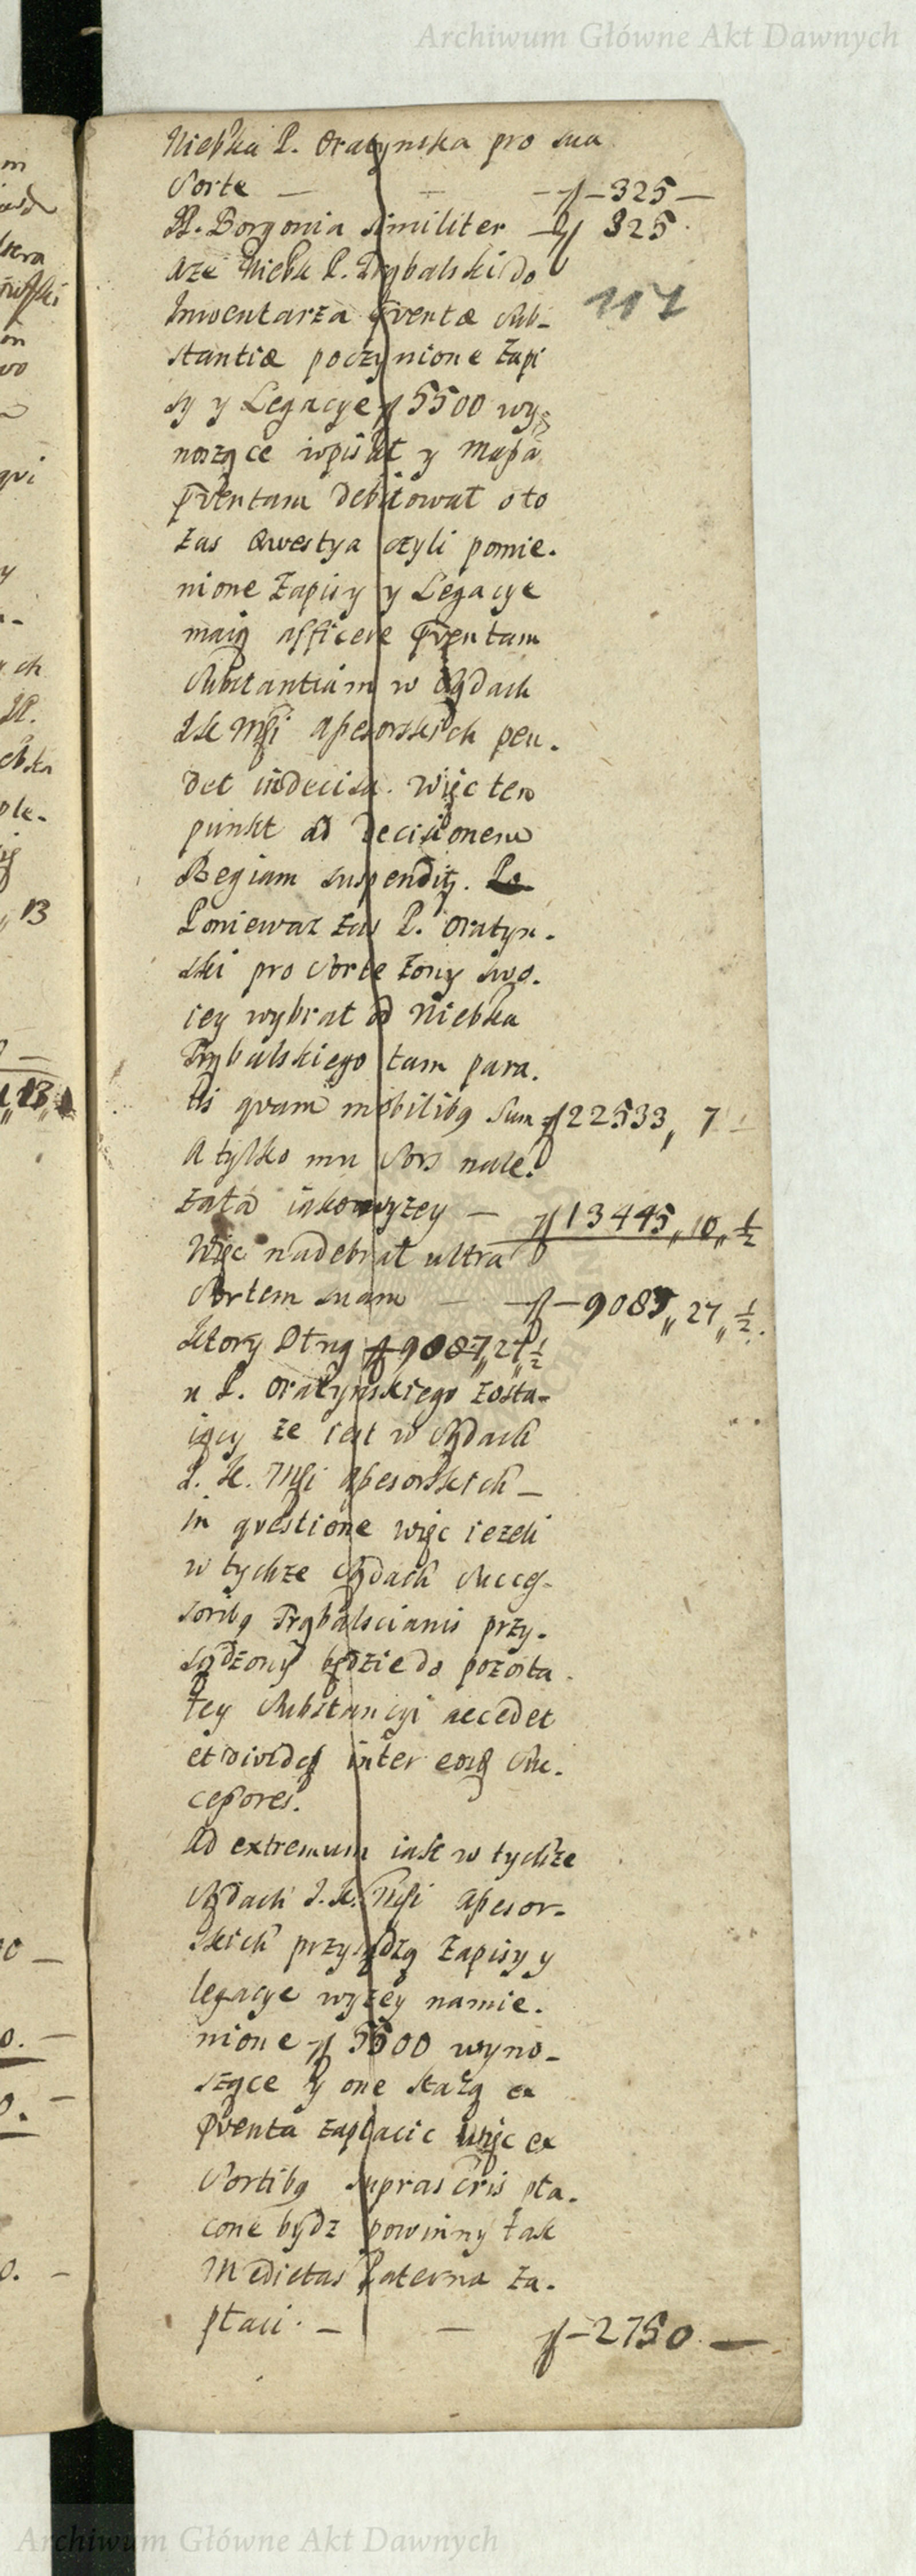 Archiwum Główne Akt Dawnych
Niebka P. Oratynska pro sua
Sorte — — — f — 325 —
P. Borgonia similiter — f 325.
aże Niebk P. Trybalski do
117
Inwentarza Qventæ Sub-
stantiæ poczynione Zapi
sy y Legacye f 5500 wy-
noszące wpisał y Massa
Qventam Debitował o to
zas Qwestya czyli pomie-
nione Zapisy y Legacye
maią afficere Qventam
Substantiam w Sądach
J K Mśi Assesorskich pen-
det indecisa. Więc ten
punkt ad Decisionem
Regiam suspendit.
Poniewaz zas P. Oratyn-
ski pro Sorte Zony swo-
iey wybrał od Niebka
Trybalskiego tam para-
tis qvam mobilibq Sum f 22533,, 7 —
A tylko mu Sors nale-
żała iako wyzey — f 13445,, 10,, ½
Więc nadebrał ultra
Sortem suam — f — 9087,, 27,, ½.
Ktory Dług f 9087,, 27,, ½
u P. Oratynskiego zosta-
iący że iest w Sądach
J. K. Mśi Assesorskich —
in qvestione więc ieżeli
w tychże Sądach Succes-
soribq Trybalscianis przy-
sądzony będzie do pozosta-
łey Substancyi accedet
et dividet inter eosq Suc-
cessores.
Ad extremum iak w tychże
Sądach J. K. Mśi Assesor-
skich przysądzą Zapisy y
legacye wyżey namie-
nione f 5500 wyno-
szące y one każą ex
Qventa zapłacic więc ex
Sortibq suprascris pła-
cone bydz powinny tak
Medietas Paterna za-
płaci. — — f — 2750 —
Archiwum Główne Akt Dawnych